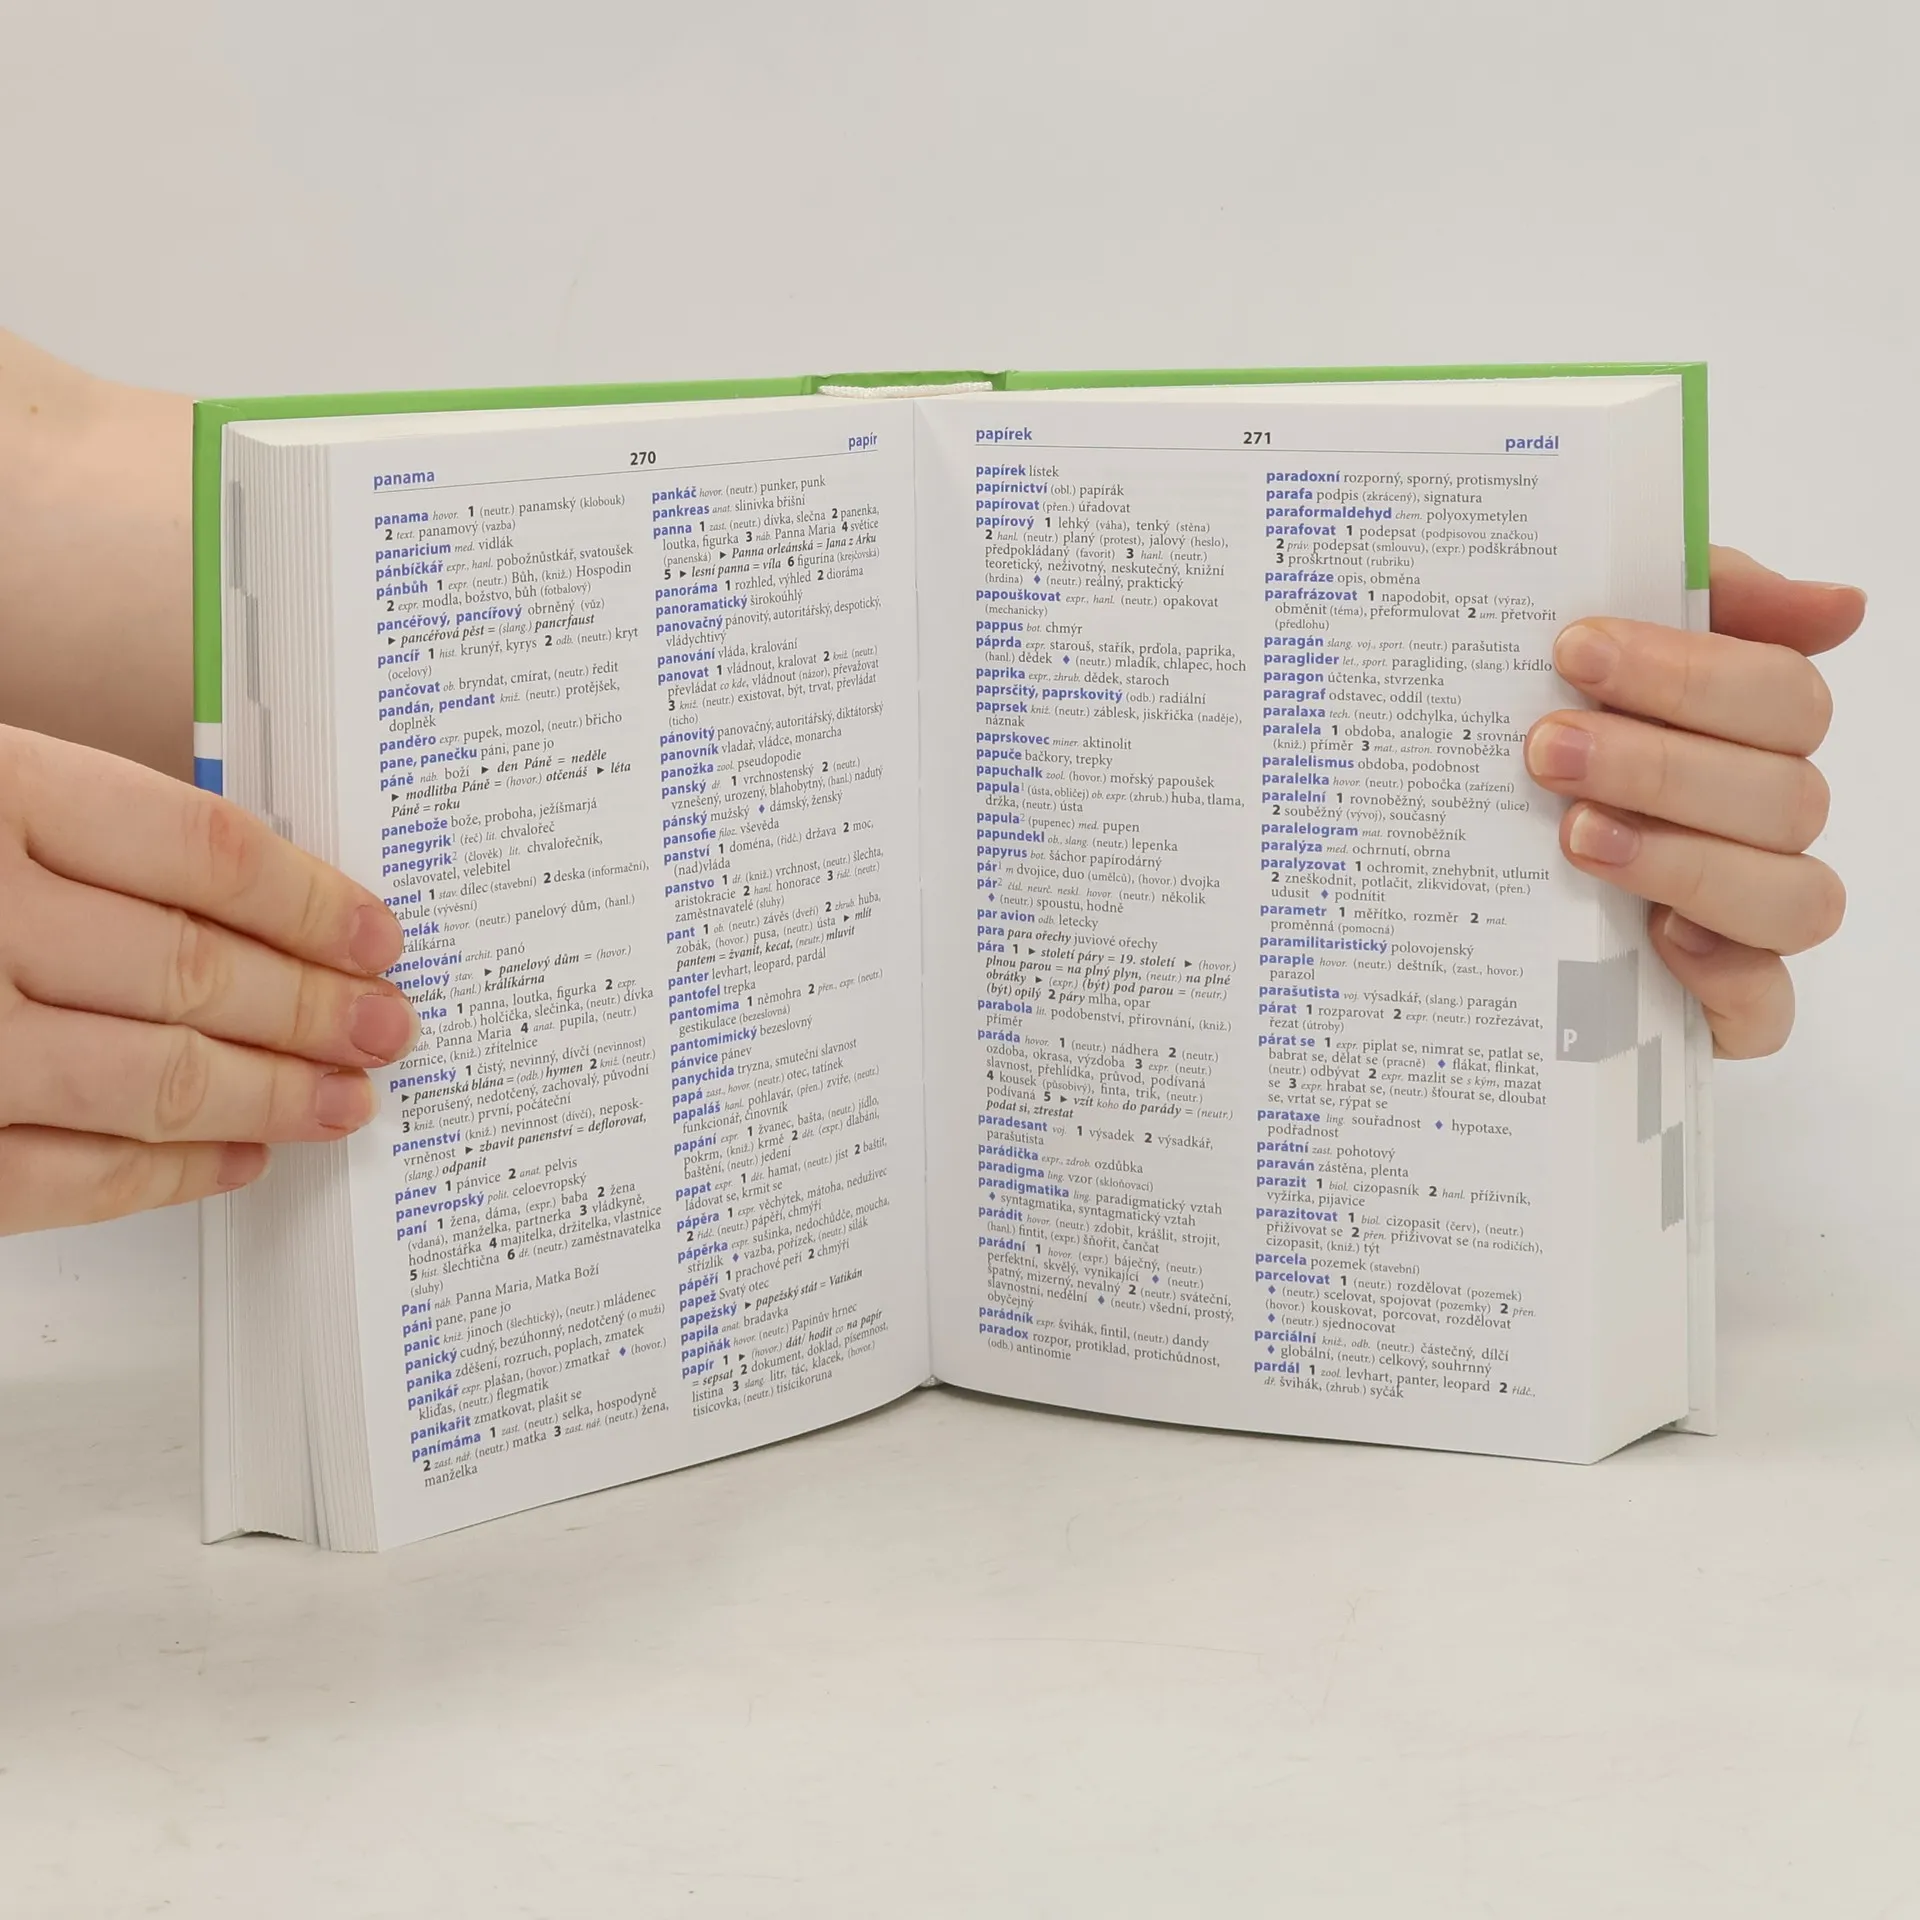 panama 270 papír
panama hovor. 1 (neutr.) panamský (klobouk)
2 text. panamový (vazba)
panaricium med. vidlák
pánbíčkář expr., hanl. pobožnůstkář, svatoušek
pánbůh 1 expr. (neutr.) Bůh, (kniž.) Hospodin
2 expr. modla, božstvo, bůh (fotbalový)
pancéřový, pancířový obrněný (vůz)
► pancéřová pěst = (slang.) pancrfaust
pancíř 1 hist. krunýř, kyrys 2 odb. (neutr.) kryt
(ocelový)
pančovat ob. bryndat, cmírat, (neutr.) ředit
pandán, pendant kniž. (neutr.) protějšek,
doplněk
panděro expr. pupek, mozol, (neutr.) břicho
pane, panečku páni, pane jo
páně náb. boží ► den Páně = neděle
► modlitba Páně = (hovor.) otčenáš ► léta
Páně = roku
panebože bože, proboha, ježíšmarjá
panegyrik¹ (řeč) lit. chvalořeč
panegyrik² (člověk) lit. chvalořečník,
oslavovatel, velebitel
panel 1 stav. dílec (stavební) 2 deska (informační),
tabule (vývěsní)
nelák hovor. (neutr.) panelový dům, (hanl.)
králíkárna
panelování archit. panó
anelový stav. ► panelový dům = (hovor.)
nelák, (hanl.) králíkárna
nka 1 panna, loutka, figurka 2 expr.
ka, (zdrob.) holčička, slečinka, (neutr.) dívka
náb. Panna Maria 4 anat. pupila, (neutr.)
zornice, (kniž.) zřítelnice
panenský 1 čistý, nevinný, dívčí (nevinnost)
► panenská blána = (odb.) hymen 2 kniž. (neutr.)
neporušený, nedotčený, zachovalý, původní
3 kniž. (neutr.) první, počáteční
panenství (kniž.) nevinnost (dívčí), neposk-
vrněnost ► zbavit panenství = deflorovat,
(slang.) odpanit
pánev 1 pánvice 2 anat. pelvis
panevropský polit. celoevropský
paní 1 žena, dáma, (expr.) baba 2 žena
(vdaná), manželka, partnerka 3 vládkyně,
hodnostářka 4 majitelka, držitelka, vlastnice
5 hist. šlechtična 6 dř. (neutr.) zaměstnavatelka
(sluhy)
Paní náb. Panna Maria, Matka Boží
páni pane, pane jo
panic kniž. jinoch (šlechtický), (neutr.) mládenec
panický cudný, bezúhonný, nedotčený (o muži)
panika zděšení, rozruch, poplach, zmatek
panikář expr. plašan, (hovor.) zmatkař ♦ (hovor.)
kliďas, (neutr.) flegmatik
panikařit zmatkovat, plašit se
panímáma 1 zast. (neutr.) selka, hospodyně
2 zast. nář. (neutr.) matka 3 zast. nář. (neutr.) žena,
manželka
pankáč hovor. (neutr.) punker, punk
pankreas anat. slinivka břišní
panna 1 zast. (neutr.) dívka, slečna 2 panenka,
loutka, figurka 3 náb. Panna Maria 4 světice
(panenská) ► Panna orleánská = Jana z Arku
5 ► lesní panna = víla 6 figurína (krejčovská)
panoráma 1 rozhled, výhled 2 dioráma
panoramatický širokoúhlý
panovačný pánovitý, autoritářský, despotický,
vládychtivý
panování vláda, kralování
panovat 1 vládnout, kralovat 2 kniž. (neutr.)
převládat co kde, vládnout (názor), převažovat
3 kniž. (neutr.) existovat, být, trvat, převládat
(ticho)
pánovitý panovačný, autoritářský, diktátorský
panovník vladař, vládce, monarcha
panožka zool. pseudopodie
panský dř. 1 vrchnostenský 2 (neutr.)
vznešený, urozený, blahobytný, (hanl.) nadutý
pánský mužský ♦ dámský, ženský
pansofie filoz. vševěda
panství 1 doména, (řidč.) država 2 moc,
(nad)vláda
panstvo 1 dř. (kniž.) vrchnost, (neutr.) šlechta,
aristokracie 2 hanl. honorace 3 řidč. (neutr.)
zaměstnavatelé (sluhy)
pant 1 ob. (neutr.) závěs (dveří) 2 zhrub. huba,
zobák, (hovor.) pusa, (neutr.) ústa ► mlít
pantem = žvanit, kecat, (neutr.) mluvit
panter levhart, leopard, pardál
pantofel trepka
pantomima 1 němohra 2 přen., expr. (neutr.)
gestikulace (bezeslovná)
pantomimický bezeslovný
pánvice pánev
panychida tryzna, smuteční slavnost
papá zast., hovor. (neutr.) otec, tatínek
papaláš hanl. pohlavár, (přen.) zvíře, (neutr.)
funkcionář, činovník
papání expr. 1 žvanec, bašta, (neutr.) jídlo,
pokrm, (kniž.) krmě 2 dět. (expr.) dlabání,
baštění, (neutr.) jedení
papat expr. 1 dět. hamat, (neutr.) jíst 2 baštit,
ládovat se, krmit se
pápěra 1 expr. věchýtek, mátoha, neduživec
2 řidč. (neutr.) pápěří, chmýří
pápěrka expr. sušinka, nedochůdče, moucha,
střízlík ♦ vazba, pořízek, (neutr.) silák
pápěří 1 prachové peří 2 chmýří
papež Svatý otec
papežský ► papežský stát = Vatikán
papila anat. bradavka
papiňák hovor. (neutr.) Papinův hrnec
papír 1 ► (hovor.) dát/ hodit co na papír
= sepsat 2 dokument, doklad, písemnost,
listina 3 slang. litr, tác, klacek, (hovor.)
tisícovka, (neutr.) tisícikoruna
papírek 271 pardál
papírek lístek
papírnictví (obl.) papírák
papírovat (přen.) úřadovat
papírový 1 lehký (váha), tenký (stěna)
2 hanl. (neutr.) planý (protest), jalový (heslo),
předpokládaný (favorit) 3 hanl. (neutr.)
teoretický, neživotný, neskutečný, knižní
(hrdina) ♦ (neutr.) reálný, praktický
papouškovat expr., hanl. (neutr.) opakovat
(mechanicky)
pappus bot. chmýr
páprda expr. starouš, stařík, prďola, paprika,
(hanl.) dědek ♦ (neutr.) mladík, chlapec, hoch
paprika expr., zhrub. dědek, staroch
paprsčitý, paprskovitý (odb.) radiální
paprsek kniž. (neutr.) záblesk, jiskřička (naděje),
náznak
paprskovec miner. aktinolit
papuče bačkory, trepky
papuchalk zool. (hovor.) mořský papoušek
papula¹ (ústa, obličej) ob. expr. (zhrub.) huba, tlama,
držka, (neutr.) ústa
papula² (pupenec) med. pupen
papundekl ob., slang. (neutr.) lepenka
papyrus bot. šáchor papírodárný
pár¹ m dvojice, duo (umělců), (hovor.) dvojka
pár² čísl. neurč. neskl. hovor. (neutr.) několik
♦ (neutr.) spoustu, hodně
par avion odb. letecky
para para ořechy juviové ořechy
pára 1 ► století páry = 19. století ► (hovor.)
plnou parou = na plný plyn, (neutr.) na plné
obrátky ► (expr.) (být) pod parou = (neutr.)
(být) opilý 2 páry mlha, opar
parabola lit. podobenství, přirovnání, (kniž.)
příměr
paráda hovor. 1 (neutr.) nádhera 2 (neutr.)
ozdoba, okrasa, výzdoba 3 expr. (neutr.)
slavnost, přehlídka, průvod, podívaná
4 kousek (působivý), finta, trik, (neutr.)
podívaná 5 ► vzít koho do parády = (neutr.)
podat si, ztrestat
paradesant voj. 1 výsadek 2 výsadkář,
parašutista
parádička expr., zdrob. ozdůbka
paradigma ling. vzor (skloňovací)
paradigmatika ling. paradigmatický vztah
♦ syntagmatika, syntagmatický vztah
parádit hovor. (neutr.) zdobit, krášlit, strojit,
(hanl.) fintit, (expr.) šňořit, čančat
parádní 1 hovor. (expr.) báječný, (neutr.)
perfektní, skvělý, vynikající ♦ (neutr.)
špatný, mizerný, nevalný 2 (neutr.) sváteční,
slavnostní, nedělní ♦ (neutr.) všední, prostý,
obyčejný
parádník expr. švihák, fintil, (neutr.) dandy
paradox rozpor, protiklad, protichůdnost,
(odb.) antinomie
paradoxní rozporný, sporný, protismyslný
parafa podpis (zkrácený), signatura
paraformaldehyd chem. polyoxymetylen
parafovat 1 podepsat (podpisovou značkou)
2 práv. podepsat (smlouvu), (expr.) podškrábnout
3 proškrtnout (rubriku)
parafráze opis, obměna
parafrázovat 1 napodobit, opsat (výraz),
obměnit (téma), přeformulovat 2 um. přetvořit
(předlohu)
paragán slang. voj., sport. (neutr.) parašutista
paraglider let., sport. paragliding, (slang.) křídlo
paragon účtenka, stvrzenka
paragraf odstavec, oddíl (textu)
paralaxa tech. (neutr.) odchylka, úchylka
paralela 1 obdoba, analogie 2 srovnán
(kniž.) příměr 3 mat., astron. rovnoběžka
paralelismus obdoba, podobnost
paralelka hovor. (neutr.) pobočka (zařízení)
paralelní 1 rovnoběžný, souběžný (ulice)
2 souběžný (vývoj), současný
paralelogram mat. rovnoběžník
paralýza med. ochrnutí, obrna
paralyzovat 1 ochromit, znehybnit, utlumit
2 zneškodnit, potlačit, zlikvidovat, (přen.)
udusit ♦ podnítit
parametr 1 měřítko, rozměr 2 mat.
proměnná (pomocná)
paramilitaristický polovojenský
paraple hovor. (neutr.) deštník, (zast., hovor.)
parazol
parašutista voj. výsadkář, (slang.) paragán
párat 1 rozparovat 2 expr. (neutr.) rozřezávat,
řezat (útroby)
párat se 1 expr. piplat se, nimrat se, patlat se,
babrat se, dělat se (pracně) ♦ flákat, flinkat,
(neutr.) odbývat 2 expr. mazlit se s kým, mazat
se 3 expr. hrabat se, (neutr.) šťourat se, dloubat
se, vrtat se, rýpat se
parataxe ling. souřadnost ♦ hypotaxe,
podřadnost
parátní zast. pohotový
paraván zástěna, plenta
parazit 1 biol. cizopasník 2 hanl. příživník,
vyžírka, pijavice
parazitovat 1 biol. cizopasit (červ), (neutr.)
přiživovat se 2 přen. přiživovat se (na rodičích),
cizopasit, (kniž.) týt
parcela pozemek (stavební)
parcelovat 1 (neutr.) rozdělovat (pozemek)
♦ (neutr.) scelovat, spojovat (pozemky) 2 přen.
(hovor.) kouskovat, porcovat, rozdělovat
♦ (neutr.) sjednocovat
parciální kniž., odb. (neutr.) částečný, dílčí
♦ globální, (neutr.) celkový, souhrnný
pardál 1 zool. levhart, panter, leopard 2 řidč.,
dř. švihák, (zhrub.) syčák
P